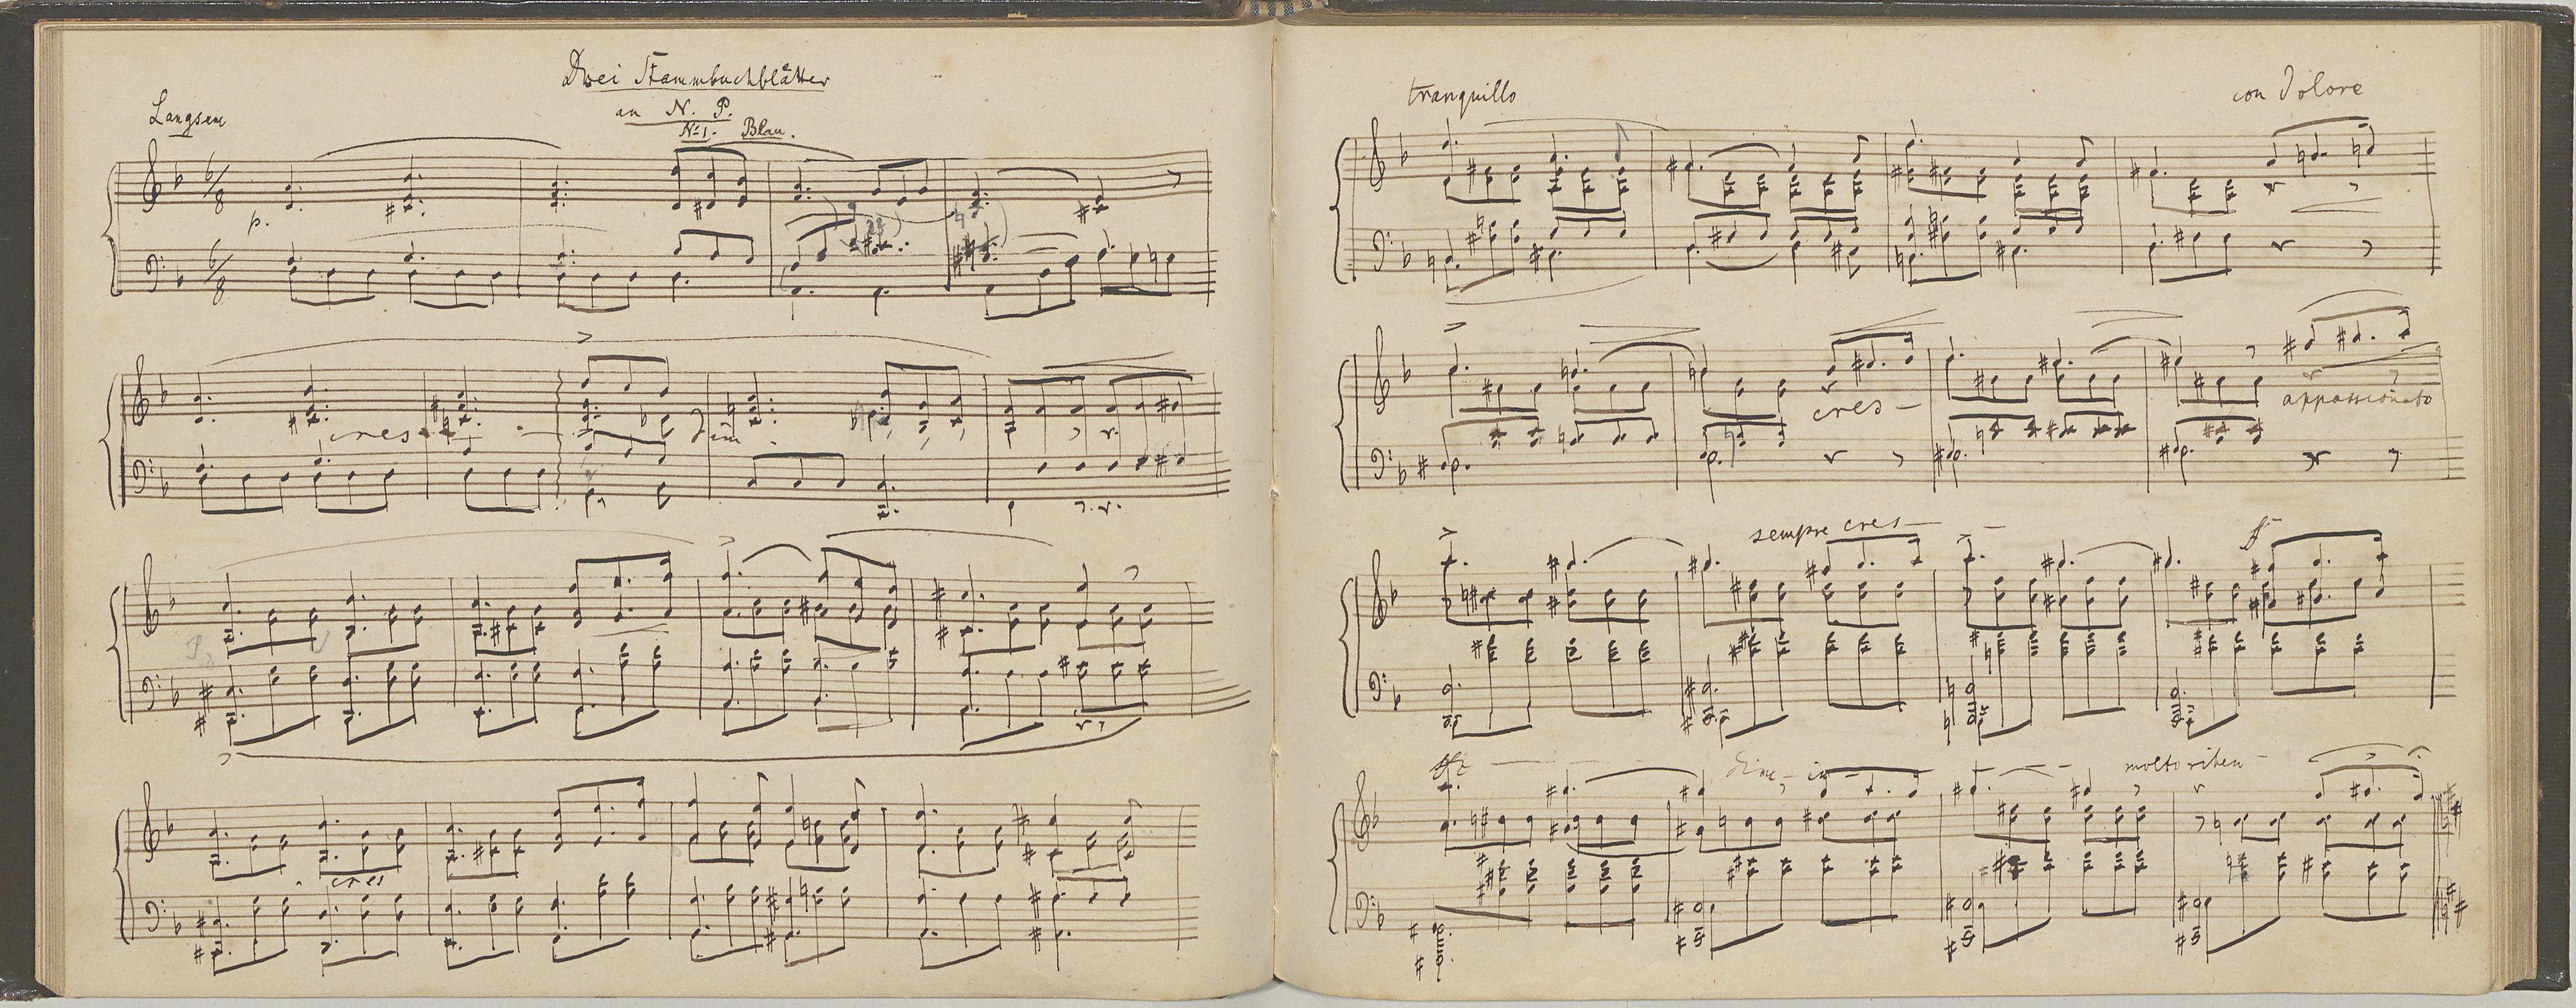 Drei Stammbuchblätter
an N. P.
No 1. Blau.
Langsam
6/8
p.
6/8
cres - -
dim
cres
tranquillo
con dolore
cres -
appassionato
sempre cres -
f
dim - in -
molto riten -